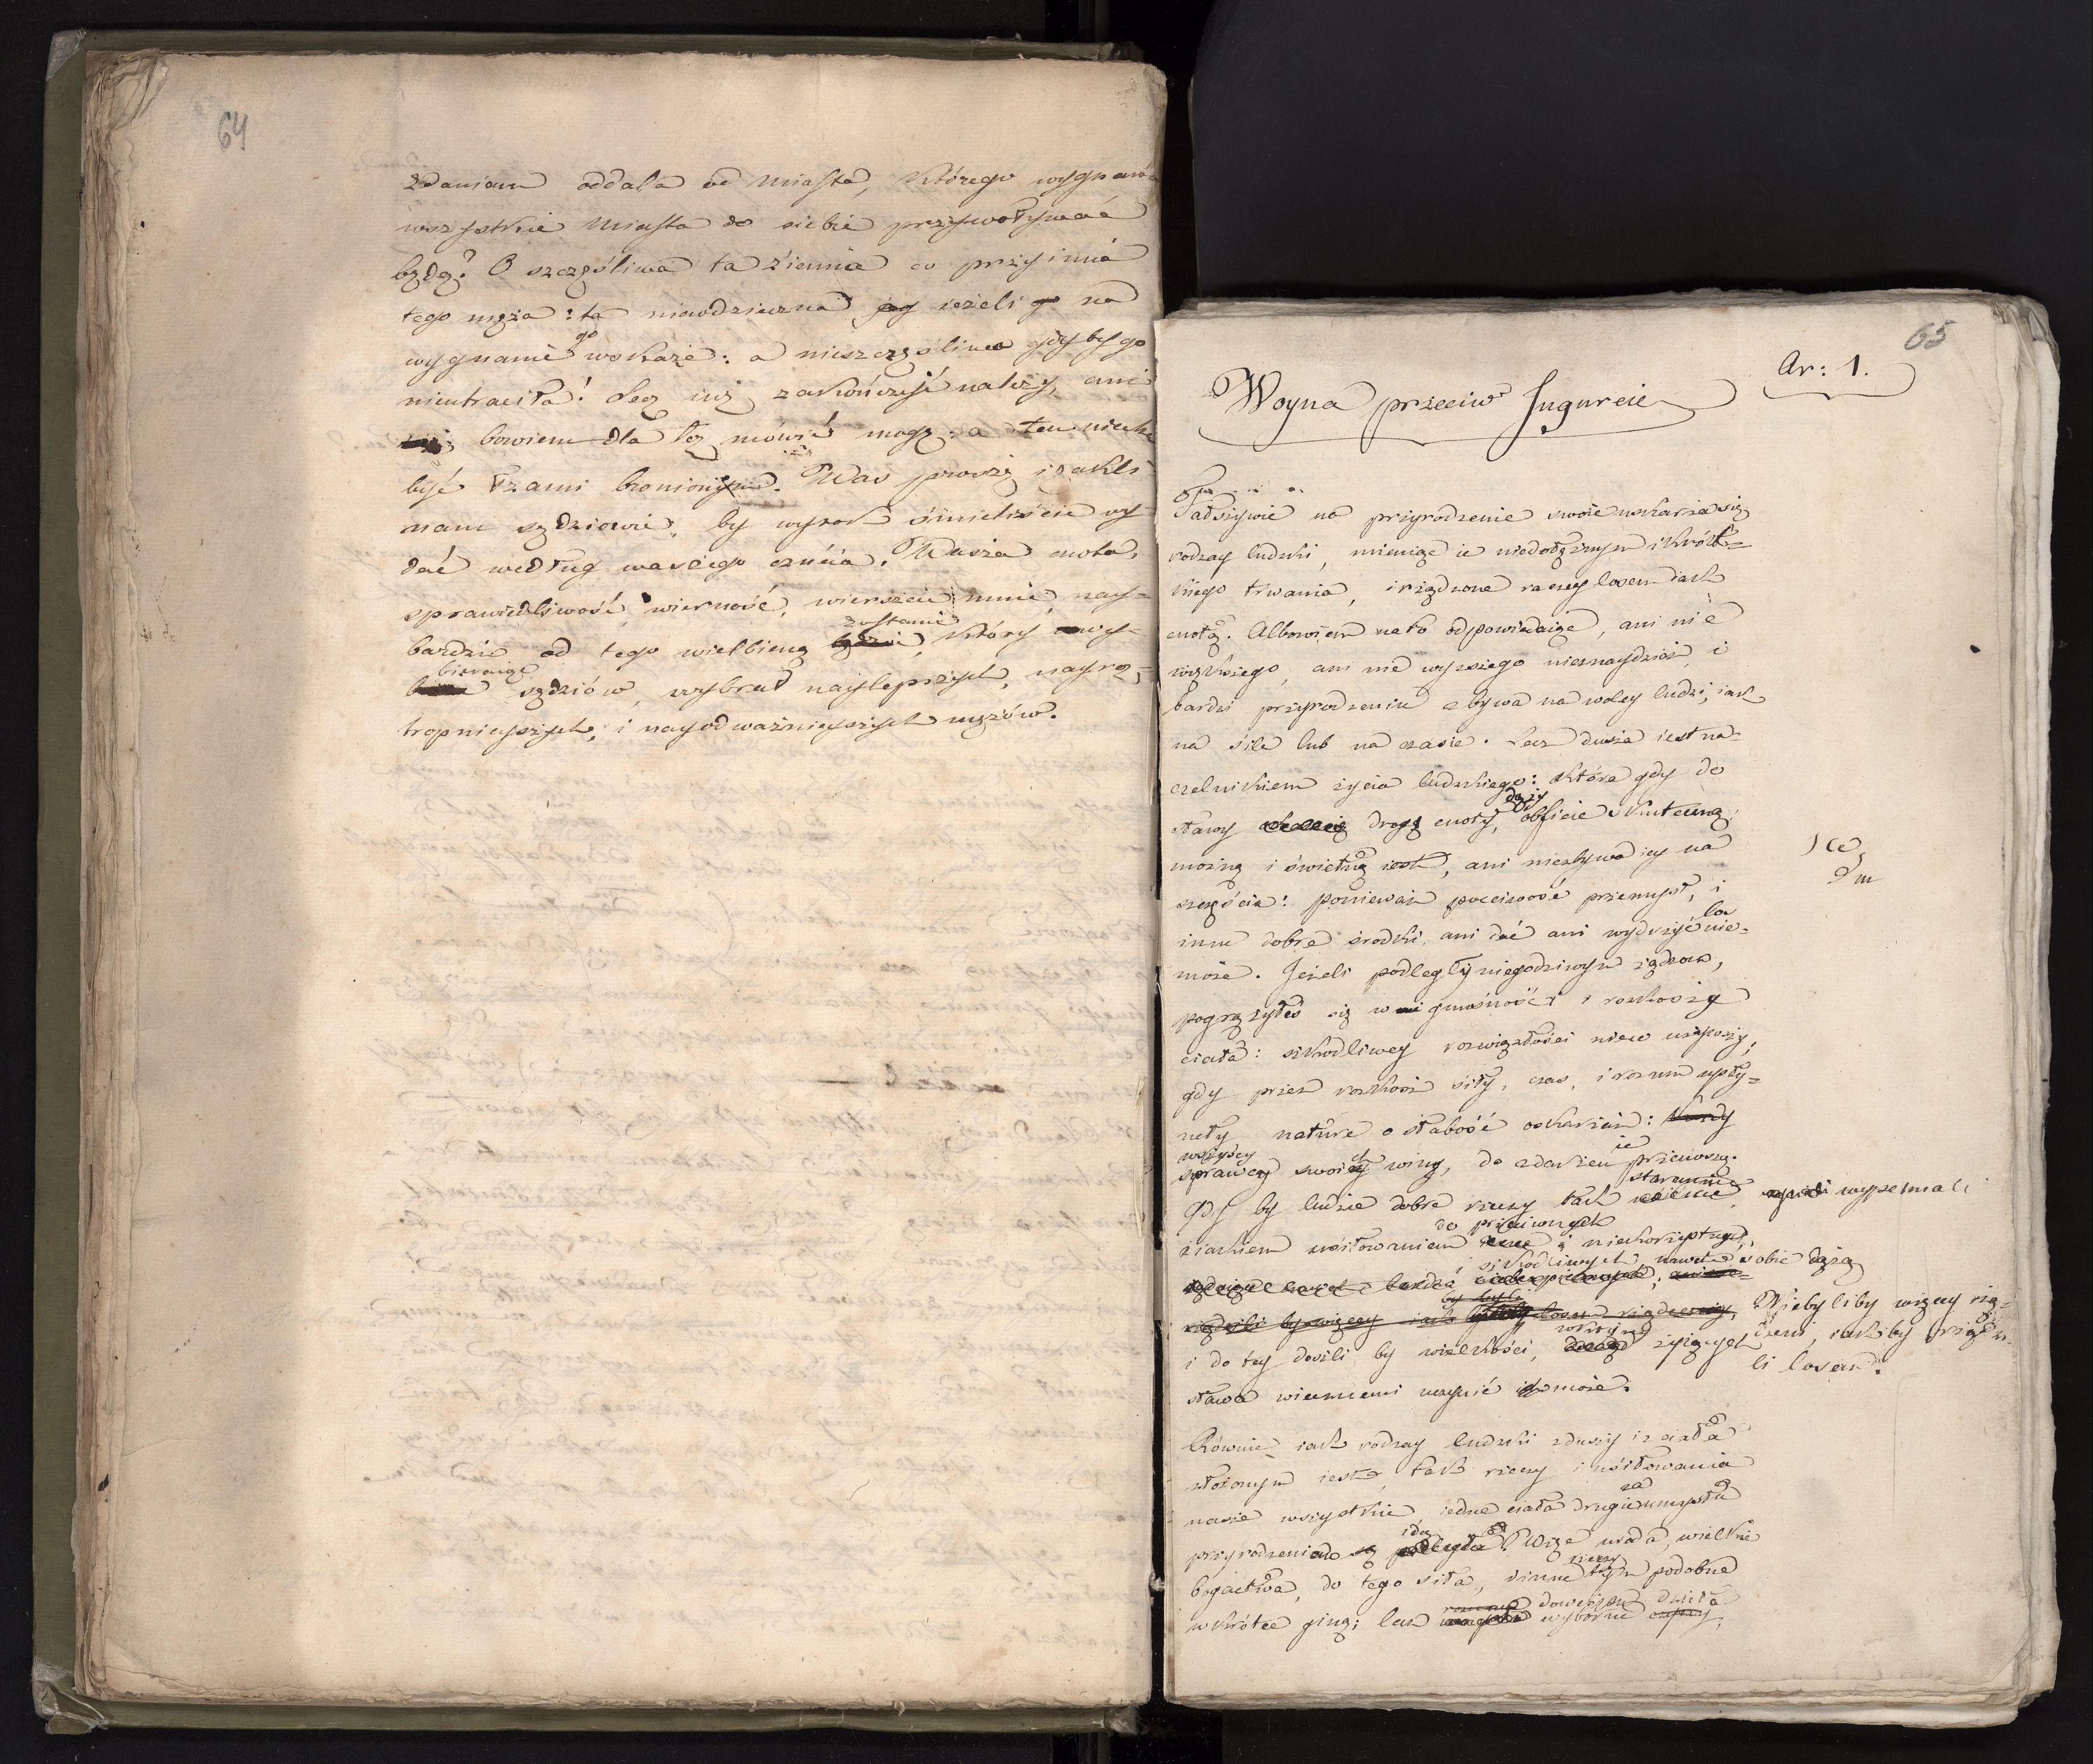 64
zdaniem oddala od miasta, którego wygnańca
wszystkie miasta do siebie przywoływać
będą? O szczęśliwa ta ziemia co przyimie
tego męża: ta niewdzięczna ieżeli na
wygnanie go wskaże: a nieszczęśliwa gdyby go
nieutraciła! Lecz iuż zakończyć należy, ani
bowiem dla łez mówić mogę: a ten niechce
być łzami bronionym. Was proszę i zakli
nam sędziowie, by wyrok śmieliście wy-
dać według waszego czucia. Wasza cnota,
sprawiedliwość, wierność, wierzcie mnie, nay-
bardzie od tego wielbieną zostanie, który wy-
bieraiąc sędziów, wybrał naylepszych, nayroz-
tropnieyszych, i nayodważnieyszych mężów.
65
Ar: 1.
Woyna przeciw Jugurcie
Fałszywie na przyrodzenie swoie uskarża się
rodzay ludzki, mieniąc ie niedołężnym i krót-
kiego trwania, i rządzone raczey losem iak
cnotą. Albowiem na to odpowiedaiąc, ani nic
większego, ani nic wyższego nieznaydziesz, i
bardzi przyrodzeniu zbywa na woley ludzi, iak
na sile lub na czasie. Lecz dusza iest na-
czelnikiem życia ludzkiego: która gdy do
sławy drogą cnoty dąży, obficie skuteczną,
możną i świetną iest, ani niezbywa iey na
szczęścia: ponieważ poczciwość przemysł, i
inne dobre środki, ani dać ani wydrzyć los nie-
może. Jeżeli podległy niegodziwym rządzom,
pogrążyłeś się w gnuśność i rozkoszy
ciała: szkodliwey rozwięzłości nieco używszy,
gdy przez rozkosz siły, czas, i rozum upły-
nęły naturę o słabość oskarżasz:
wszyscy sprawcy swoiey winy, do zdarzeń ie przenoszą.
Gdy by ludzie dobre rzeczy tak starannie wypełniali
z iakiem usiłowaniem do przeciwnych i niekorzystnych,
i szkodliwych nawet sobie dążą
Niebyliby więcy rzą-
dzeni, iakiby rządzi-
li losem.
i do tey doszli by wielkości, w którey żyiących
sława wiecznemi uczynić może.
Równie iak rodzay ludzki z duszy i z ciała
złożonym iest, tak rzeczy i usiłowania
nasze wszystkie, iedne ciała drugie za umysłu
przyrodzeniem idą. Więc uroda, wielkie
bogactwa, do tego siła, i inne tym podobne rzeczy
wkrótce giną; lecz wyborne dowcipu dzieła